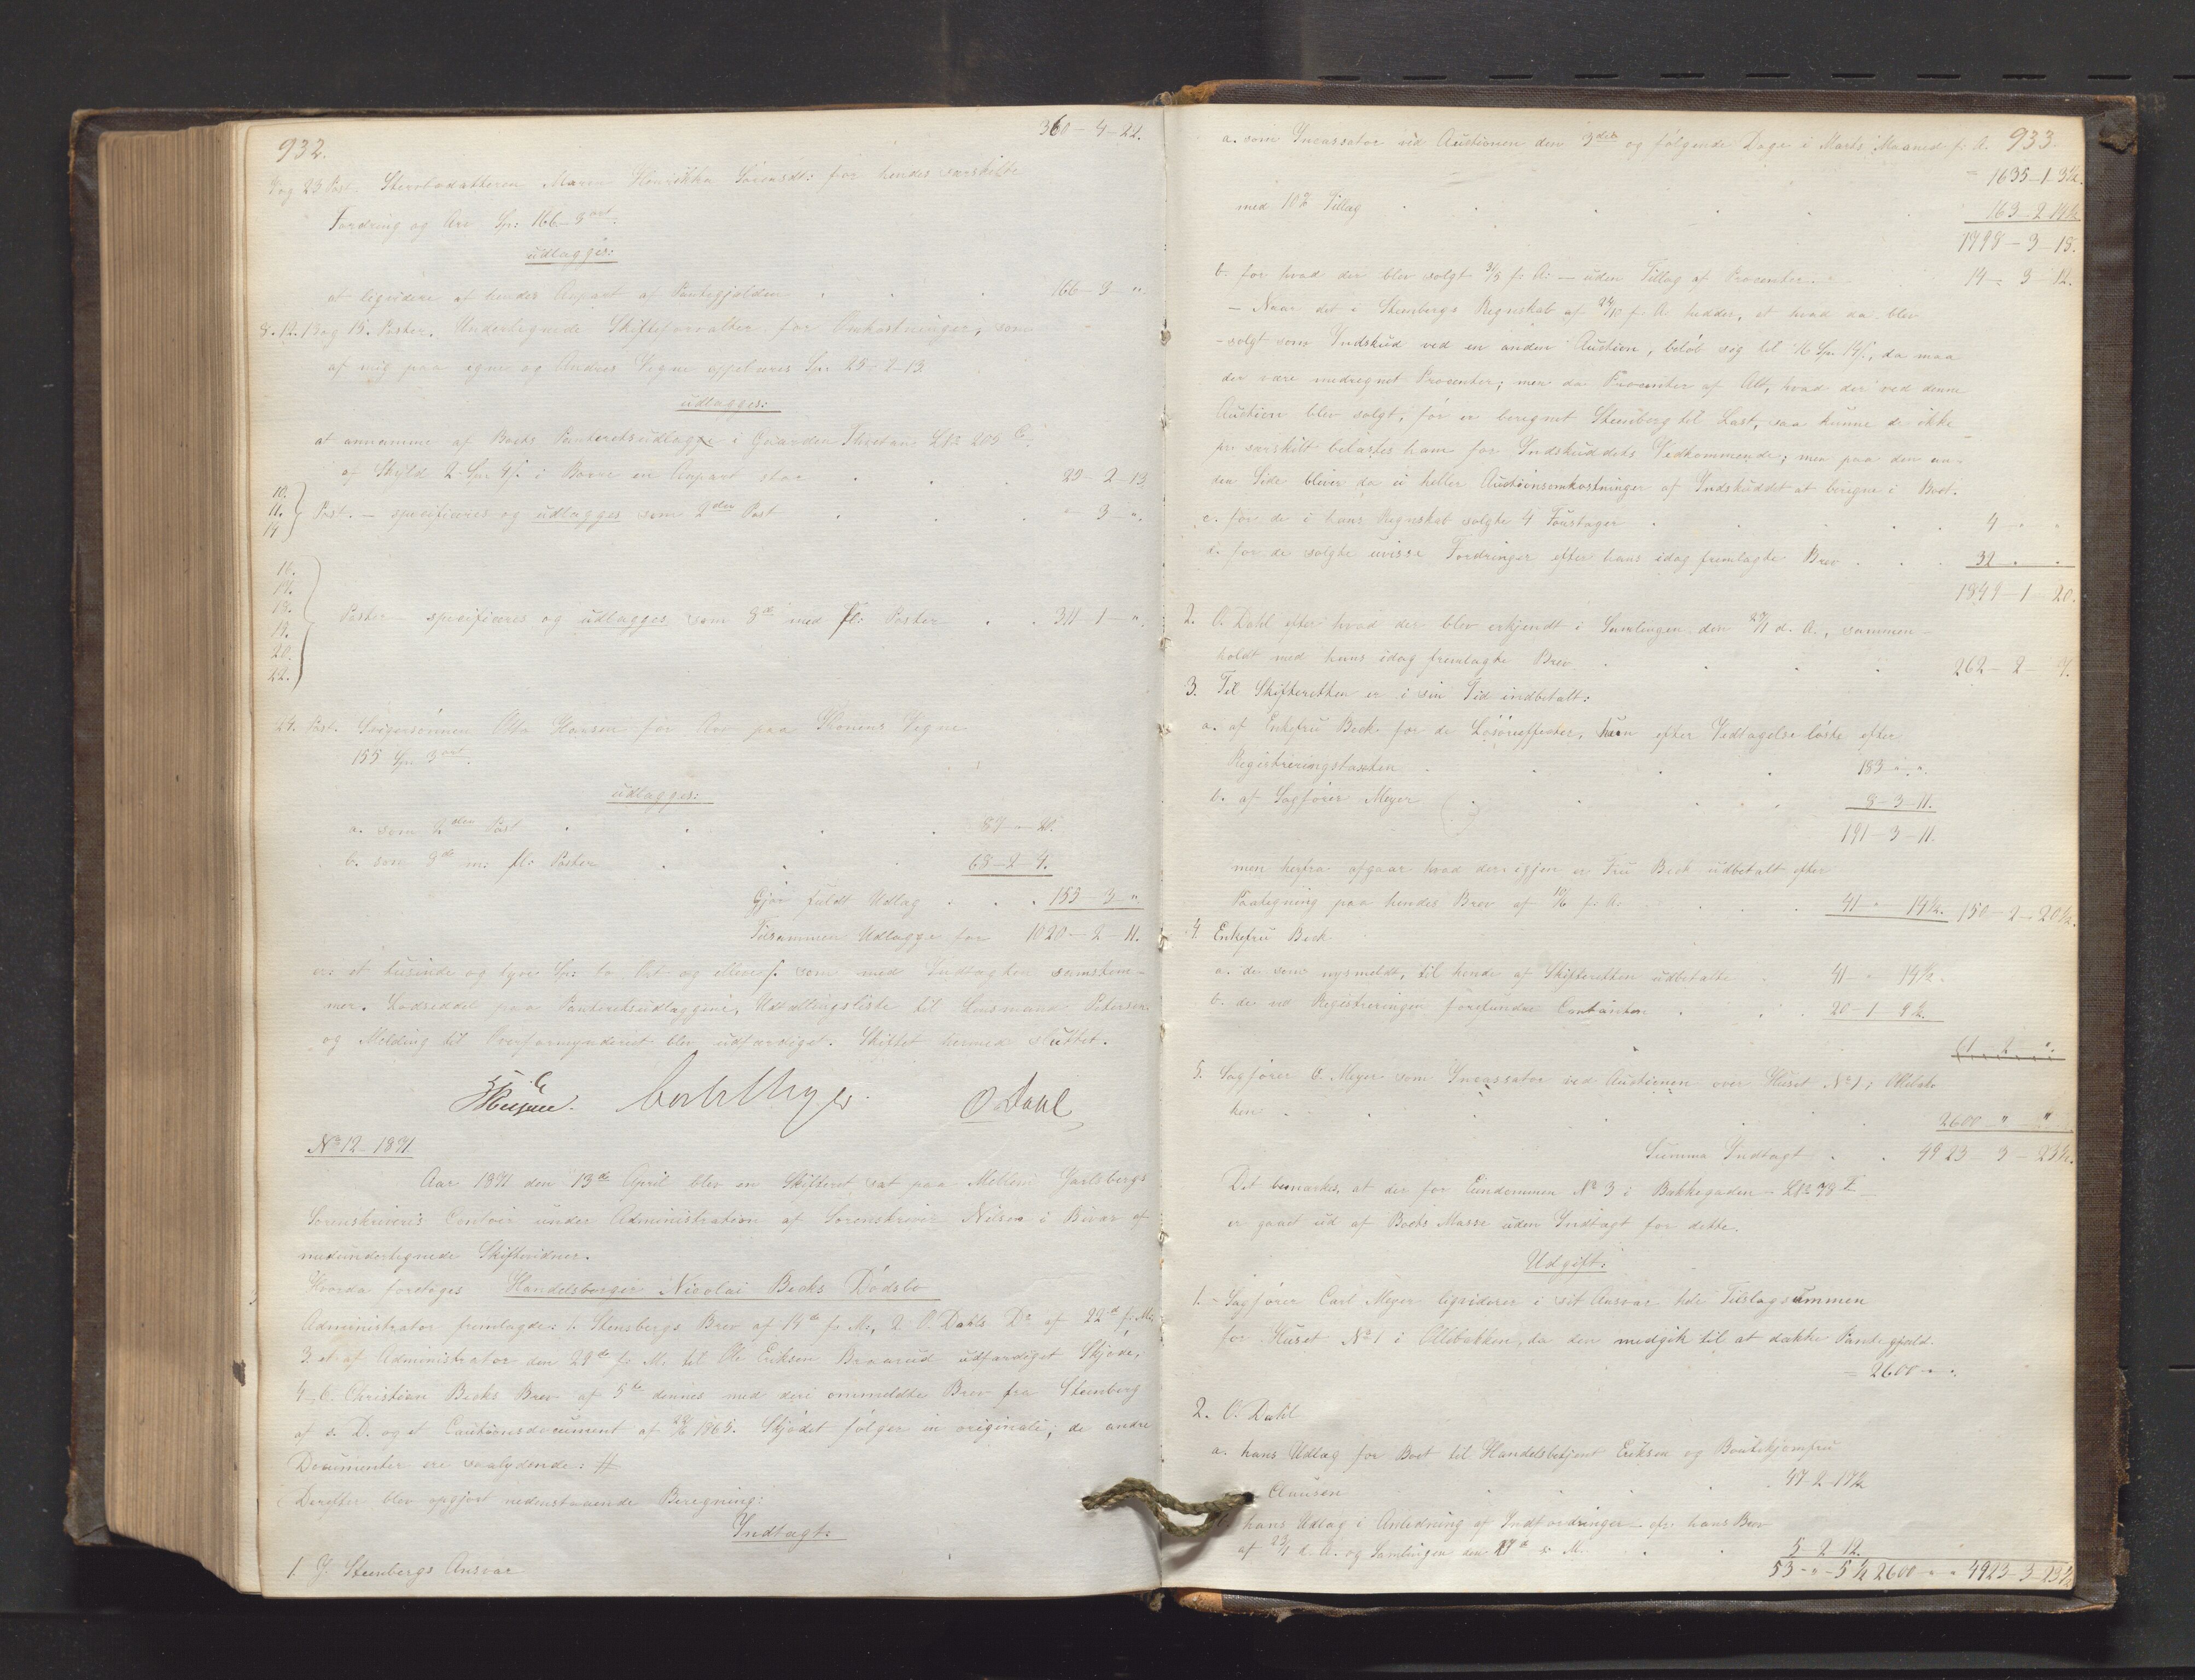 932.
360 - 4 - 22.
7 og 23 Post. Sterbodatteren Maren Henrikka Sørensdt: for hendes særskilte
Fordring og Arv Sp: 166 - 3 ort:
udlægges:
at liqvidere af hendes Anpart af Pantegjælden . . . 166 - 3 - ".
8. 12. 13 og 15. Poster. Undertegnede Skifteforvalter for Omkostninger, som
af mig paa egne og Andres Vegne oppebæres Sp: 25 - 2 - 13.
udlægges:
at annamme af Boets Panteretsudlægge i Gaarden L№ 205
af Skyld 2 Sp: 4 s. i Borre en Anpart stor . . . 25 - 2 - 13.
10.
11. Post. - specificeres og udlægges som 2den Post . . . " - 3 - ".
14
16.
17.
18.
19. Poster specificeres og udlægges som 8de med fl: Poster . . 311 - 1 - ".
20.
22.
24. Post. Svigersønnen Otto Hansen for Arv paa Konens Vegne
155 Sp: 3 ort.
udlægges:
a. som 2den Post . . . . 87 - " - 20.
b. som 8de m: fl: Poster . . . 68 - 2 - 4.
Gjør fuldt Udlæg . . . 155 - 3 - "
Tilsammen Udlægge for 1020 - 2 - 11.
er: et tusinde og tyve Sp: to Ort og elleve s. som med Indtægten samstem-
mer. Lodseddel paa Panteretsudlæggene, Uddelingsliste til Lensmand Petersen
og Melding til Overformynderiet blev udfærdiget. Skiftet hermed sluttet.
Carl Meyer. O Dahl
№ 12 - 1871
Aar 1871 den 13de April blev en Skifteret sat paa Mellem Jarlsbergs
Sorenskriveris Contoir under Administration af Sorenskriver Nilsen i Bivær af
medundertegnede Skiftevidner.
Hvorda foretoges Handelsborger Nicolai Becks Dødsbo
Administrator fremlagde: 1. Stensbergs Brev af 14de f. M., 2. O. Dahls Do af 22d f. M.,
3. et af Administrator den 29de f. M. til Ole Eriksen Braarud udfærdiget Skjøde,
4. C. Christian Becks Brev af 5te dennes med deri ommeldte Brev fra Steenberg
af s. D. og et Cautionsdocument af 1865. Skjødet følger in originali; de andre
Documenter ere saalydende: #
Derefter blev opgjort nedenstaaende Beregning:
Indtægt:
1. J. Steenbergs Ansvar
933.
a. som Incassator ved Auctionen den 2den og følgende Dage i Marts Maaned f: A.
1635 - 1 - 3½.
med 10% Tillæg . . . . . 163 - 2 - 14½
1798 - 3 - 18.
b. for hvad der blev solgt 31/5 f: A: - uden Tillæg af Procenter. . 14 - 3 - 12.
- Naar det i Steenbergs Regnskab af 24/10 f. A. hedder, at hvad da blev
- solgt som Indskud ved en anden Auction, beløb sig til 16 Sp: 14 s., da maa
der være medregnet Procenter; men da Procenter af Alt, hvad der ved denne
Auction blev solgt, før er beregnet Steenberg til Last, saa kunne de ikke
særskilt belastes ham for Indskuddets Vedkommende; men paa den an-
den Side bliver da ei heller Auctionsomkostninger af Indskuddet at beregne i Boet.
c. for de i hans Regnskab solgte 4 Foustager . . . 4 " "
d. for de solgte uvisse Fordringer efter hans idag fremlagte Brev . . . 32 " "
1849 - 1 - 20.
2. O. Dahl efter hvad der blev erkjendt i Samlingen den d. A., sammen-
holdt med hans idag fremlagte Brev . . . . 262 - 2 - 4.
3. Til Skifteretten er i sin Tid indbetalt:
a. af Enkefru Beck for de Løsøreeffecter, hun efter Vedtagelse løste efter
Registreringstaxten . . . . 183 " "
b. af Sagfører Meyer . . . . 8 - 3 - 11.
191 - 3 - 11.
men herfra afgaar hvad der igjen er Fru Beck udbetalt efter
Paategning paa hendes Brev af 10/6 f: A. . . . . 41 " 14½. 150 - 2 - 20½.
4. Enkefru Beck
a. de som nysmeldt, til hende af Skifteretten udbetalte . 41 - " 14½.
b. de ved Registreringen forefundne Contanter . . . 20 - 1 - 9½.
61 - 2 - ".
5. Sagfører C. Meyer som Incassator ved Auctionen over Huset № 1 i Ollebak
ken . . . . . 2600 " "
Summa Indtægt . . 4923 - 3 - 23½.
Det bemærkes, at der for Eiendommen № 3 i Bakkegaden - L№ 78
er gaaet ud af Boets Masse uden Indtægt for dette.
Udgift:
1. - Sagfører Carl Meyer liqviderer i sit Ansvar hele Tilslagssummen
for Huset № 1 i Ollebakken, da den medgik til at dække Pantegjæld.
= 2600 " ".
2. O. Dahl
a. hans Udlæg for Boet til Handelsbetjent Eriksen og Boutikjomfru
Clausen . . . . . 47 - 2 - 17½
hans Udlæg i Anledning af Indfordringer - cfr: hans Brev
af 23/1 d. A. og Samlingen den s: M. . . 5 - 2 - 12.
53 - " - 5½ 2600 - " - " 4923 - 3 - 23½